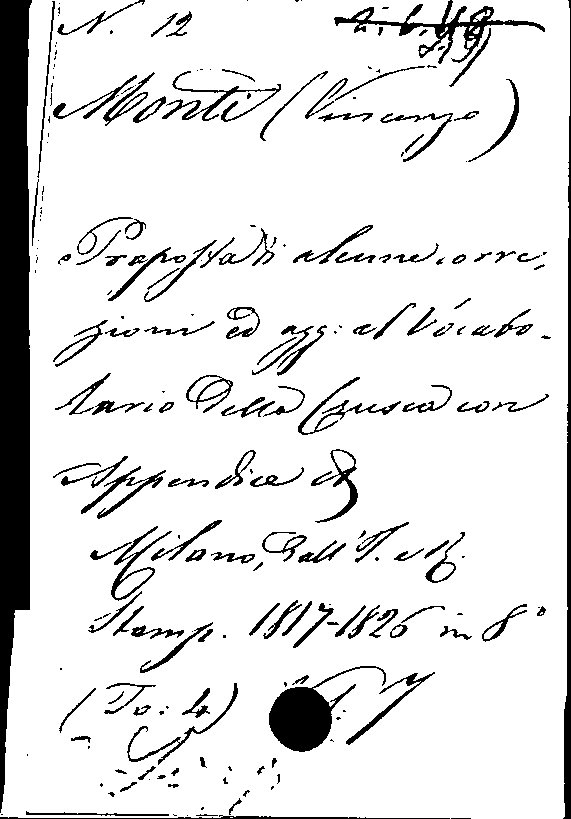 N. 12
Monti (Vincenzo)
Proposta di alcune corre-
zioni ed agg: al Vocabo-
lario della Crusca con
Appendice &
Milano, dall'I. e R.
Stamp. 1817-1826 in 8°
(To: 4)